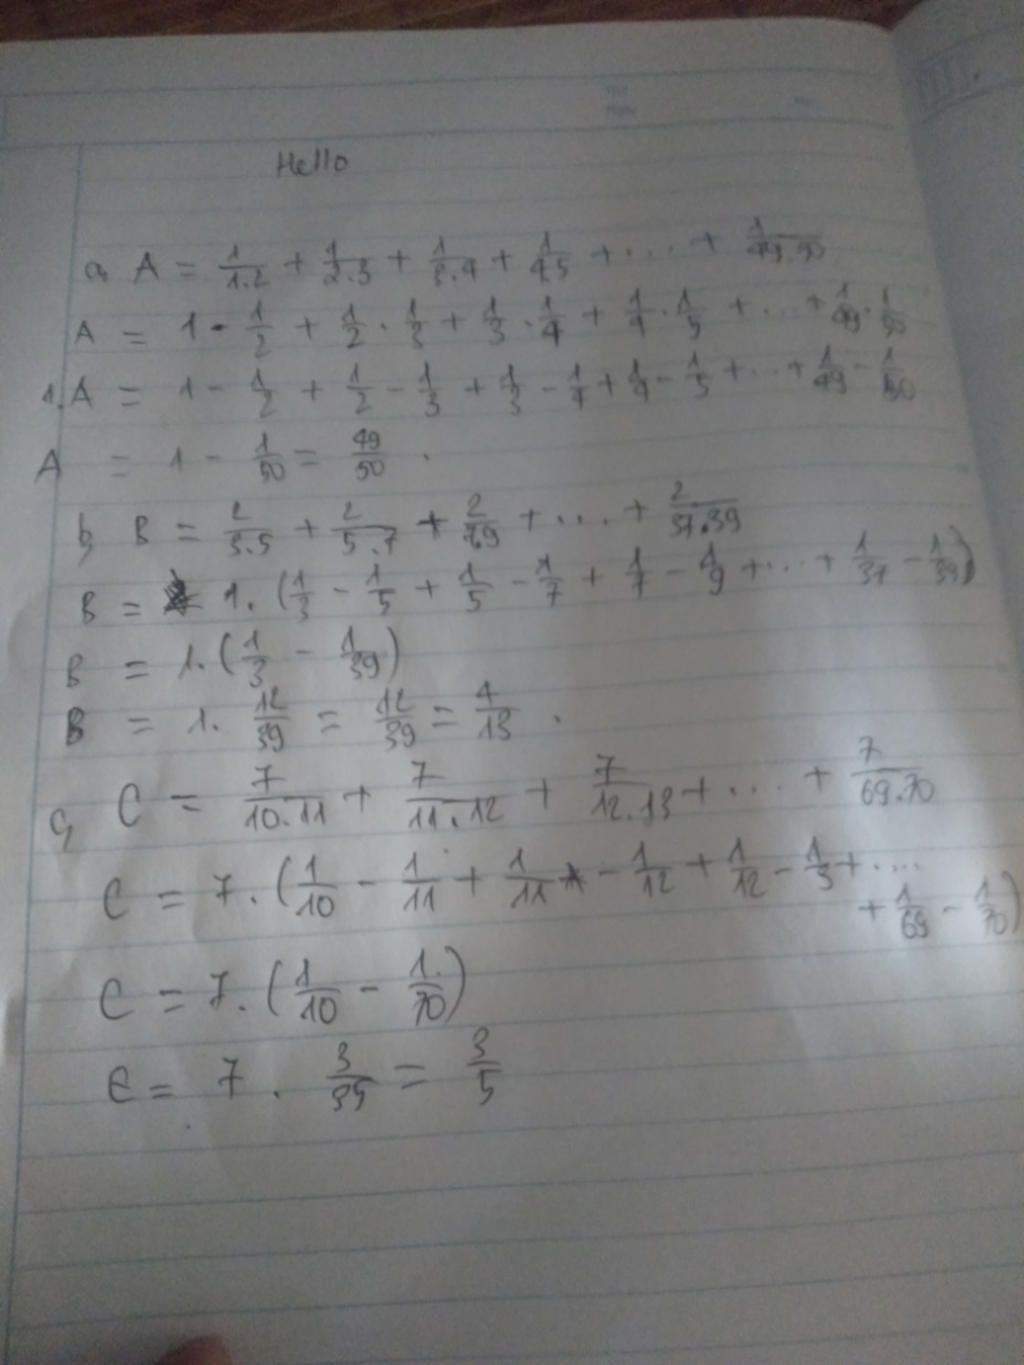 Hello
a, A = 1/1.2 + 1/2.3 + 1/3.4 + 1/4.5 + .... + 1/49.50
A = 1 - 1/2 + 1/2 . 1/3 + 1/3 . 1/4 + 1/4 . 1/5 + ... + 1/49 . 1/50
1.A = 1 - 1/2 + 1/2 - 1/3 + 1/3 - 1/4 + 1/4 - 1/5 + ... + 1/49 - 1/50
A = 1 - 1/50 = 49/50 .
b, B = 2/3.5 + 2/5.7 + 2/7.9 + .... + 2/37.39
B = 1. (1/3 - 1/5 + 1/5 - 1/7 + 1/7 - 1/9 + ... + 1/37 - 1/39)
B = 1. (1/3 - 1/39)
B = 1. 12/39 = 12/39 = 4/13 .
c, C = 7/10.11 + 7/11.12 + 7/12.13 + .... + 7/69.70
C = 7. (1/10 - 1/11 + 1/11 - 1/12 + 1/12 - 1/3 + ....
+ 1/69 - 1/70)
C = 7. (1/10 - 1/70)
C = 7 . 3/35 = 3/5